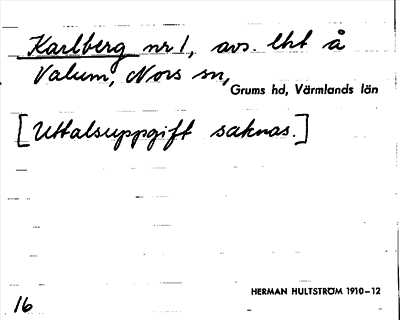 Karlberg nr 1, avs. lht å
Valum, Nors sn,
Grums hd, Värmlands län
[Uttalsuppgift saknas.]
HERMAN HULTSTRÖM 1910–12
16